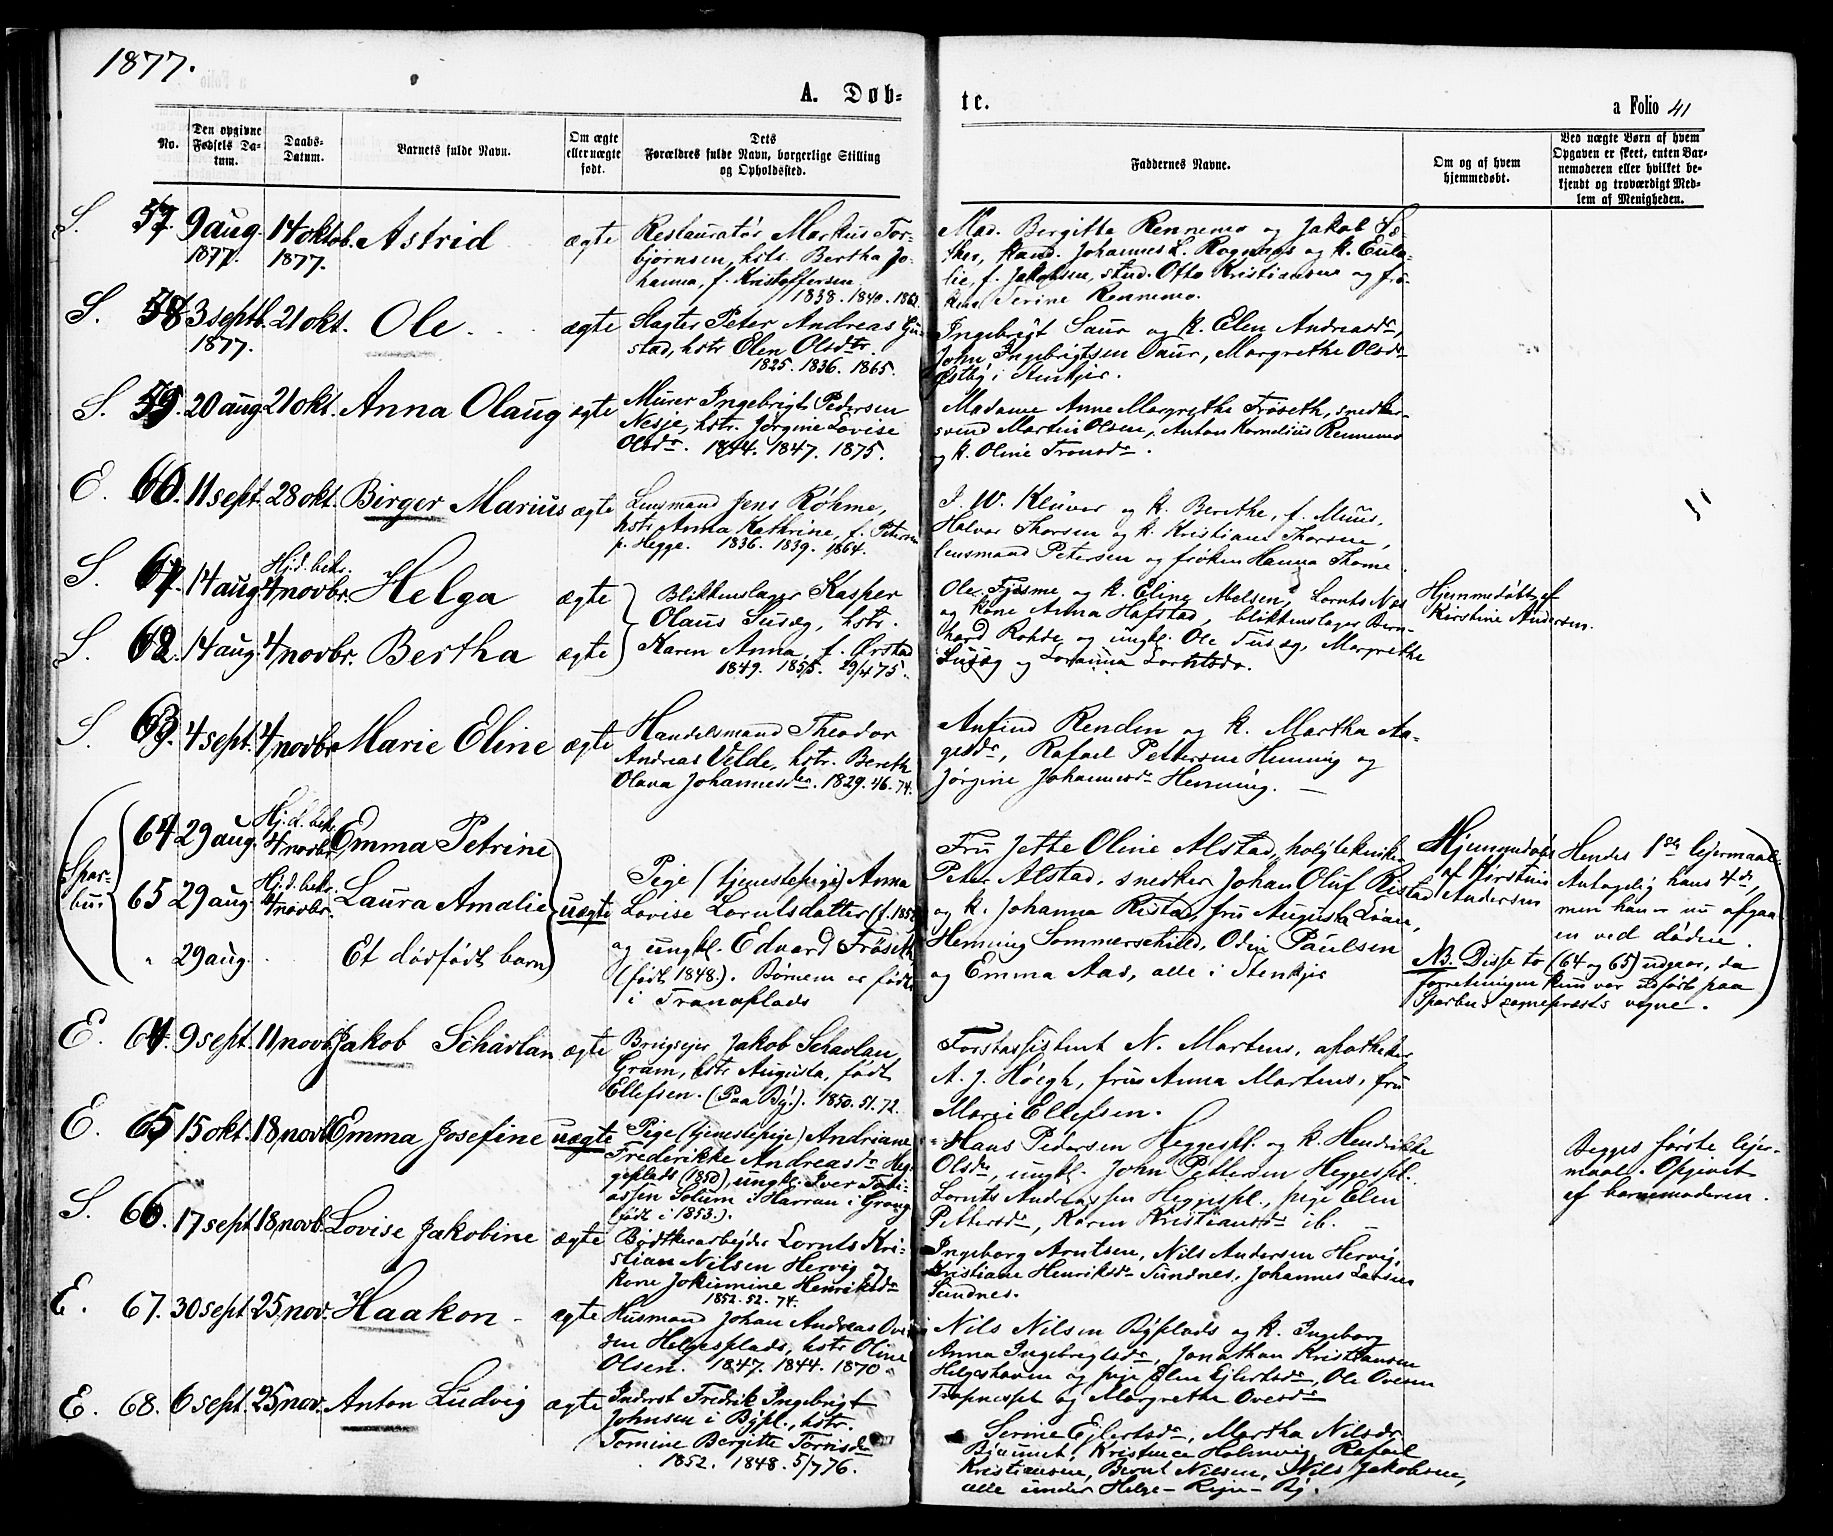 1877.
A. Døb-
te.
a Folio 41
No.
Den opgivne Fødsels Da-tum.
Daabs-Datum.
Barnets fulde Navn.
Om ægte eller uægte født.
Dets Forældres fulde Navn, borgerlige Stilling og Opholdssted.
Faddernes Navne.
Om og af hvem hjemmedøbt.
Ved uægte Børn af hvem Opgaven er skeet, enten Bar-nemoderen eller hvilket be-kjendt og troværdigt Med-lem af Menigheden.
S. 57. 9 aug. 1877. 14 oktob. 1877. Astrid ægte
Restauratør Markus Tor-
bjørnsen, hstr. Bertha Jo-
hanna, f. Kristoffersen
1838. 1840. 1862.
Mad. Bergitte Rennemo og Jakob
kand. Johannes L. Rognnæs og k. Eula-
lie, f. Jakobsen, stud. Otto Kristiansen og frø-
ken Serine Rennemo.
S. 58 3 septb. 1877. 21 okt. Ole. ægte
Slagter Peter Andreas
stad, hstr Elen Olsdtr.
1825. 1836. 1865.
Ingebrigt Saur og k. Elen Andreasdr,
John Ingebrigtsen Saur, Margrethe Olsdr
Østby i Stenkjer.
S. 59. 20 aug. 21 okt. Anna Olaug ægte
Murer Ingebrigt Pedersen
Nesje, hstr. Jørgine Lovise
Olsdr. 1844. 1847. 1875.
Madame Anne Margrethe Frøseth, snedker-
svend Martin Olsen, Anton Kornelius Rennemo
og k. Oline Tronsdr.
E. 60. 11 sept. 28 okt. Birger Marius ægte
Lensmand Jens Røhme,
hstr Anna Kathrine, f. Petersen
p. Hegge. 1836. 1839. 1864.
J. W. Klüver og k. Berethe, f. Muus,
Halvor Thorsen og k. Kristiane Thorsen,
lensmand Petersen og frøken Hanna Thome.
S. 61. 14 aug. Hj.d. bekr. 4/novbr. Helga ægte
Blikkenslager Kasper
Olaus Susæg, hstr.
S. 62. 14 aug. 4/novbr. Bertha ægte
Karen Anna, f. Ørstad
1849. 1855. 29/4 75.
Ole Fjesme og k. Eline Melsen, Lornts Næs
og kone Anna Hafstad, blikkenslager Bern-
hard Rohde og ungkl. Ole Susæg, Margrethe
Susæg og Lovanna Lorntsdr.
Hjemmedøbt af
Kirstine Andersen.
S. 63. 4 sept. 4/novbr. Marie Eline ægte
Handelsmand Theodor
Andreas Velde, hstr. Bereth
Olava Johannesdtr. 1829. 46. 74.
Anfind Renden og k. Martha Aa-
gesdr, Rafael Pettersen Henning og
Jørgine Johannesdr Henning.
Spar-
bu
64 29 aug. Hj.d. bekr. 4/novbr. Emma Petrine
65 29 aug. Hj.d. bekr. 4/novbr. Laura Amalie uægte
" 29 aug. Et dødfødt barn
Pige (tjenestepige) Anna
Lovise Lorntsdatter (f. 185
og ungkl. Edvard Frøseth
(født 1848). Børnene er fødte
i Tranaplads
Fru Jette Oline Alstad, polytekniker
Peter Alstad, snedker Johan Oluf Ristad
og k. Johanna Ristad, fru Augusta Loan,
Henning Sommerschild, Odin Paulsen
og Emma Aas, alle i Stenkjer
Hjemmedøbt
af Kirstine
Andersen
Hendes 1ste lejermaal.
Antagelig hans 4de,
men han er nu afgaa-
en ved døden.
NB. Disse to (64 og 65) udgaar, da
forretningen kun var udført paa
Sparbu sognepræsts vegne.
E. 64. 9 sept. 11/novb. Jakob Schavlan ægte
Brugsejer Jakob Schavlan
Gram, hstr Augusta, født
Ellefsen. (Paa By.). 1850. 51. 72.
Forstassistent N. Martens, apotheker
A. J. Høegh, frue Anna Martens, fru
Marie Ellefsen.
E. 65. 15 okt. 18/novb. Emma Josefine uægte
Pige (tjenestepige) Andriane
Frederikke Andreasdr Heg-
geplads (1850), ungkl. Iver Tobi-
assen Solum i Harran i Grong
(født i 1853).
Hans Pedersen Heggespl. og k. Hendrikke
Olsdr, ungkl. John Pettersen Heggespl.
Lornts Andreassen Heggespl., pige Elen
Pettersdr, Karen Kristiansdr ib.
Begges første lejer-
maal. Opgivet
af barnemoderen.
S. 66. 17 sept. 18/novb. Lovise Jakobine ægte
Bødtkerarbejder Lornts Kri-
stian Nilsen Hervig og
kone Jokumine Henriksdr
1852. 52. 74.
Ingeborg Arntsen, Nils Andersen Hervig,
Kristiane Henriksdr Sundnes, Johannes Larsen
Sundnes.
E. 67. 30 sept. 25/nov. Haakon ægte
Husmand Johan Andreas
Helgesplads, hstr Oline
Olsen. 1847. 1844. 1870.
Nils Nilsen Byplads og k. Ingeborg
Anna Ingebrigtsdr, Jonathan Kristiansen
Helgeshaven og pige Elen Ejlertsdr, Ole Ovesen
og Margrethe Ovesdr
E. 68. 6 sept. 25/nov. Anton Ludvig ægte
Inderst Fredrik Ingebrigt
Johnsen i Bypl., hstr.
Tomine Bergitte Torrisdr
1852. 1848. 5/7 76.
Serine Ejlertsdr, Martha Nilsdr
Kristence Holmvig, Rafael
Kristiansen, Bernt Nilsen, Nils Jakobsen,
alle under Helge- By.